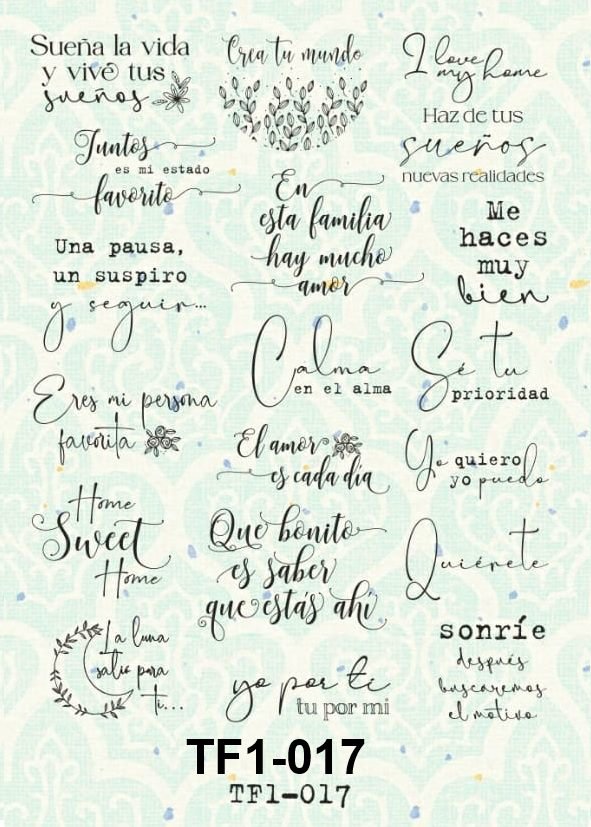 Sueña la vida
y vive tus
sueños
Juntos
es mi estado
favorito
Una pausa,
un suspiro
y seguir...
Eres mi persona
favorita
Home
Sweet
Home
La luna
salió para
ti...
Crea tu mundo
En
esta familia
hay mucho
amor
Calma
en el alma
El amor
es cada día
Que bonito
es saber
que estás ahí
yo por ti
tu por mi
I love
my home
Haz de tus
sueños
nuevas realidades
Me
haces
muy
bien
Sé tu
prioridad
Yo quiero
yo puedo
Quiérete
sonríe
después
buscaremos
el motivo
TF1-017
TF1-017